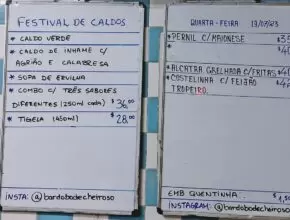 FESTIVAL DE CALDOS
* CALDO VERDE
* CALDO DE INHAME C/
AGRIÃO E CALABRESA
* SOPA DE ERVILHA
* COMBO C/ TRÊS SABORES
DIFERENTES (250ml cada) $36,00
* TIGELA (450ml) $28,00
INSTA: @bardobodecheiroso
QUARTA-FEIRA 13/07/23
* PERNIL C/ MAIONESE
* ALCATRA GRELHADA C/ FRITAS
* COSTELINHA C/ FEIJÃO
TROPEIRO.
EMB QUENTINHA
INSTAGRAM: @bardobodecheiroso